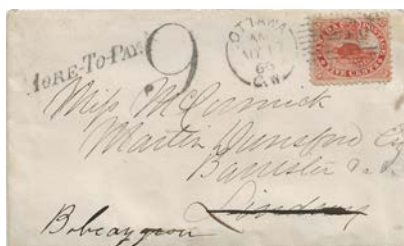 MORE-TO-PAY.
9
OTTAWA
AM
MY 17
66
C.W.
FIVE CENTS
Miss McCormick
Martin Dunsford Esq
Barrister
Lindsay
Bobcaygeon